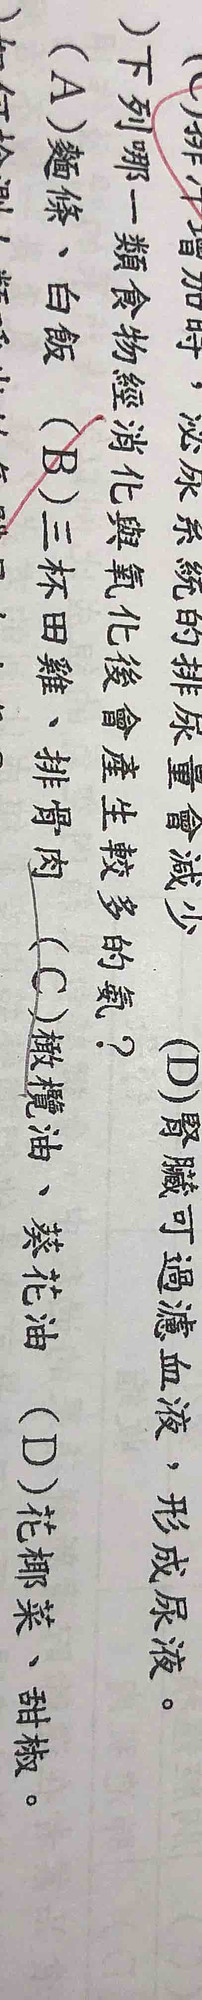 (C)排汗增加時，泌尿系統的排尿量會減少　(D)腎臟可過濾血液，形成尿液。
)下列哪一類食物經消化與氧化後會產生較多的氨？
(A)麵條、白飯　(B)三杯田雞、排骨肉　(C)橄欖油、葵花油　(D)花椰菜、甜椒。